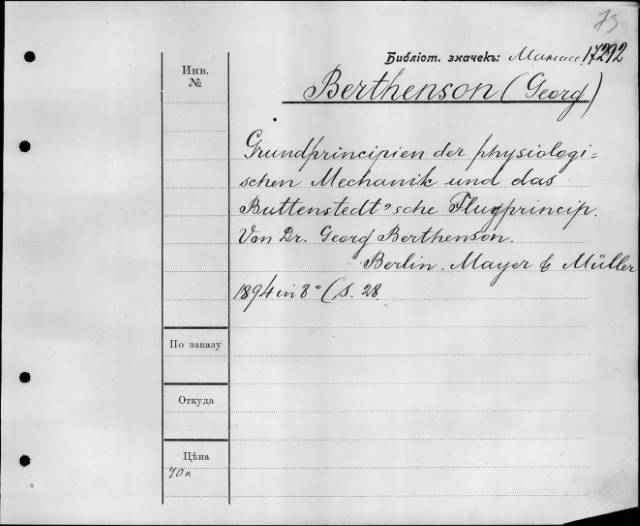 73
Библіот. значекъ: 17292
Инв.
№
Berthenson (Georg)
Grundprincipien der physiologi=
schen Mechanik und das
Buttenstedt'sche Flugprincip.
Von Dr. Georg Berthenson.
Berlin. Mayer & Müller
1894 in 8° (S. 28
По заказу
Откуда
Цѣна
70к